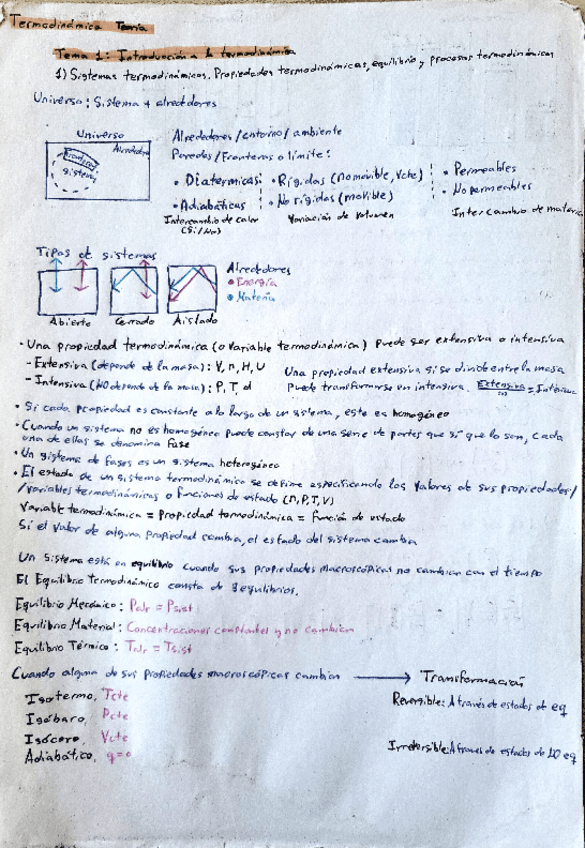 Termodinámica Teoría
Tema 1: Introducción a la termodinámica
1) Sistemas termodinámicos. Propiedades termodinámicas, equilibrio y procesos termodinámicos
Universo: Sistema + alrededores
Universo
Alrededores
Fronteras
sistema
Alrededores/entorno/ambiente
Paredes/Fronteras o límite:
• Diatermicas
• Adiabáticas
Intercambio de calor
(Sí/No)
• Rígidas (no movible, Vcte)
• No rígidas (movible)
Variación de volumen
• Permeables
• No permeables
Intercambio de materia
Tipos de sistemas
Abierto
Cerrado
Aislado
Alrededores
• Energía
• Materia
• Una propiedad termodinámica (o variable termodinámica) puede ser extensiva o intensiva
- Extensiva (depende de la masa): V, n, H, U
- Intensiva (NO depende de la masa): P, T, d
Una propiedad extensiva si se divide entre la masa
puede transformarse en intensiva. Extensiva/m = Intensiva
• Si cada propiedad es constante a lo largo de un sistema, este es homogéneo
• Cuando un sistema no es homogéneo puede constar de una serie de partes que sí que lo son, cada
una de ellas se denomina Fase
• Un sistema de fases es un sistema heterogéneo
• El estado de un sistema termodinámico se define especificando los valores de sus propiedades/
/variables termodinámicas o funciones de estado (n, P, T, V)
Variable termodinámica = propiedad termodinámica = función de estado
Si el valor de alguna propiedad cambia, el estado del sistema cambia
Un sistema está en equilibrio cuando sus propiedades macroscópicas no cambian con el tiempo
El Equilibrio Termodinámico consta de 3 equilibrios.
Equilibrio Mecánico: Palr = Psist
Equilibrio Material: Concentraciones constantes y no cambian
Equilibrio Térmico: Talr = Tsist
Cuando alguna de sus propiedades macroscópicas cambian → Transformación
Isotermo, Tcte
Isóbaro, Pcte
Isócoro, Vcte
Adiabático, q=0
Reversible: A través de estados de eq
Irreversible: A través de estados de NO eq